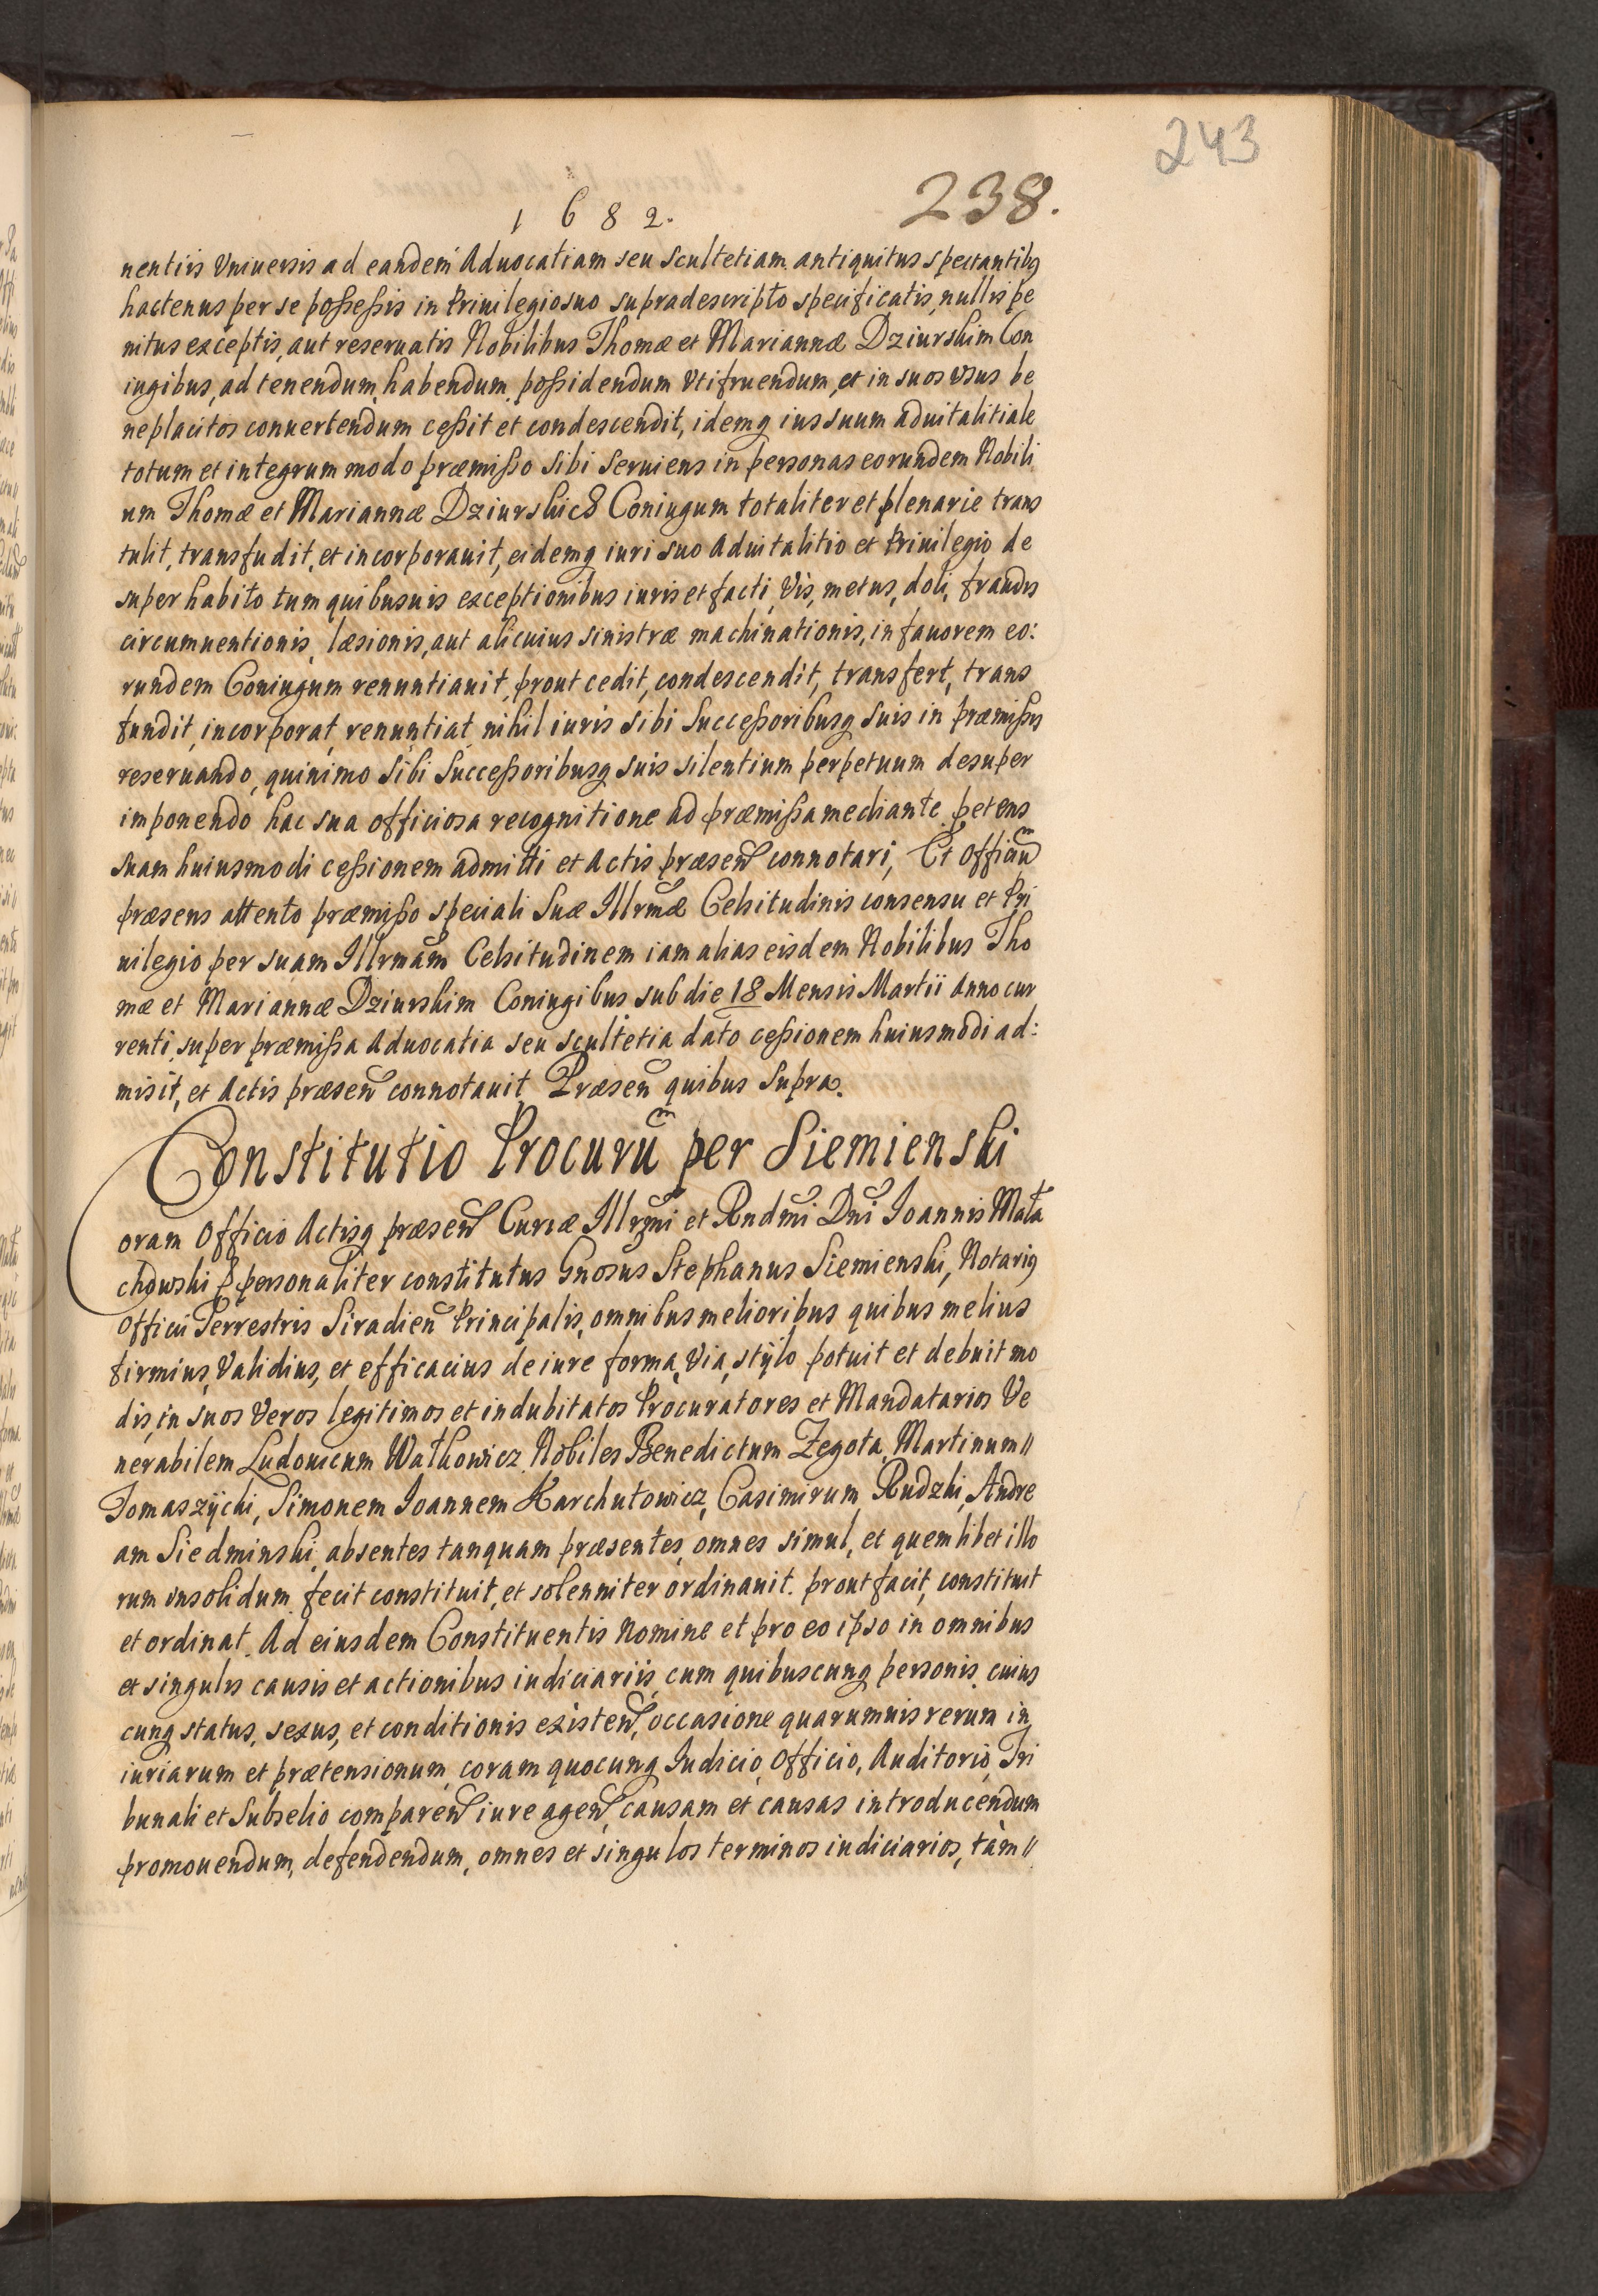 243
238.
1 6 8 2.
nentiis Vniuersis ad eandem Aduocatiam seu Scultetiam antiquitus spectantibꝫ
hactenus per se poßeßis in Priuilegio suo supradescripto specificatis, nullis pe
nitus exceptis, aut reseruatis Nobilibus Thomæ et Mariannæ Dziurskim Con
iugibus, ad tenendum, habendum, poßidendum Vtifruendum, et in suos vsus be
neplacitos conuertendum ceßit et condescendit, idemqꝫ ius suum aduitalitiale
totum et integrum modo præmißo sibi seruiens in personas eorundem Nobili
um Thomæ et Mariannæ Dziurskich Coniugum totaliter et plenarie trans
tulit, transfudit, et incorporauit, eidemqꝫ iuri suo Aduitalitio et Priuilegio de
super habito tum quibusuis exceptionibus iuris et facti, Vis, metus, doli, fraudis
circumuentionis, læsionis, aut alicuius sinistræ machinationis, in fauorem eo:
rundem Coniugum renuntiauit, prout cedit, condescendit, transfert, trans
fundit, incorporat, renuntiat, nihil iuris sibi Succeßoribusqꝫ suis in præmißis
reseruando, quinimo sibi Succeßoribusqꝫ suis silentium perpetuum desuper
imponendo hac sua officiosa recognitione ad præmißa mediante petens
suam huiusmodi ceßionem admitti et Actis præseñ connotari, Et Officiũ
præsens attento præmißo speciali Suæ Illrmæ Celsitudinis consensu et Pri
uilegio per suam Illrmam Celsitudinem iam alias eisdem Nobilibus Tho
mæ et Mariannæ Dziurskim Coniugibus sub die 18 Mensis Martii Anno cur
renti, super præmißa Aduocatia seu scultetia dato ceßionem huiusmodi ad:
misit, et Actis præseñ connotauit. Præseñ quibus Supra.
Constitutio Procurũ per Siemienski
Coram Officio Actisqꝫ præseñ Curiæ Illrmi et Rndmi Dni Ioannis Mała
chowski p personaliter constitutus Gnosus Stephanus Siemienski, Notariꝰ
Officii Terrestris Siradieñ Principalis, omnibus melioribus quibus melius
firmius, Validius, et efficacius de iure forma, Via, stÿlo potuit et debuit mo
dis, in suos Veros legitimos et indubitatos Procuratores et Mandatarios Ve
nerabilem Ludouicum Wałkowicz, Nobiles Benedictum Zegota, Martinum //
Tomaszÿcki, Simonem Ioannem Karchutowicz, Casimirum Rudzki, Andre
am Siedminski, absentes tanquam præsentes, omnes simul, et quemlibet illo
rum insolidum fecit constituit, et solenniter ordinauit. prout facit, constituit
et ordinat. Ad eiusdem Constituentis Nomine et pro eo ipso in omnibus
et singulis causis et actionibus iudiciariis, cum quibuscunqꝫ personis, cuius
cunqꝫ status, sexus, et conditionis existeñ, occasione quarumuis rerum in
iuriarum et prætensionum, coram quocunqꝫ Iudicio, Officio, Auditorio, Tri
bunali et Subselio compareñ iure ageñ, causam et causas introducendum
promouendum, defendendum, omnes et singulos terminos iudiciarios, tàm //